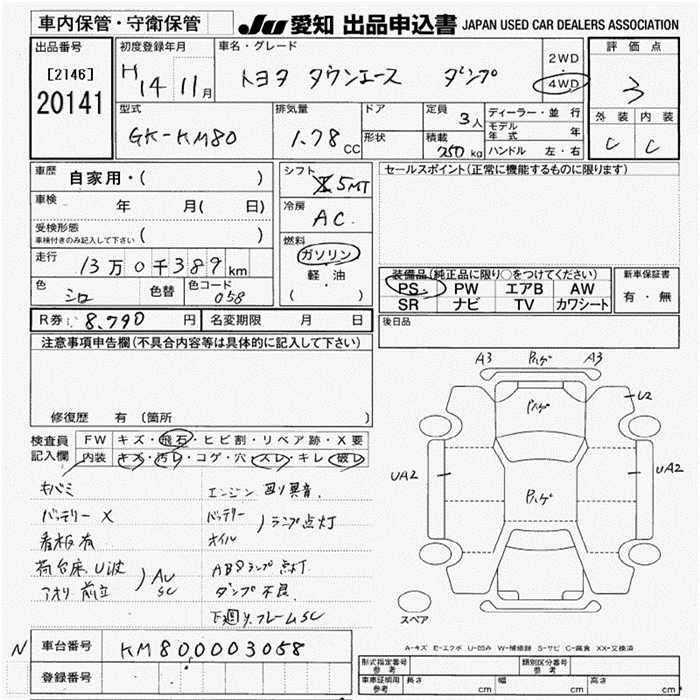 車内保管・守衛保管
JU 愛知 出品申込書 JAPAN USED CAR DEALERS ASSOCIATION
出品番号
[2146]
20141
初度登録年月
H 14 11月
車名・グレード
トヨタ タウンエース ダンプ
2WD
4WD
評価点
3
外装 内装
C C
型式
GK-KM80
排気量
1.78 CC
ドア
形状
定員 3人
積載 750 kg
ディーラー・並行
モデル年式 年
ハンドル 左・右
車歴 自家用・( )
車検 年 月( 日)
受検形態
車検付きのみ記入して下さい ( )
走行 13万0千389km
色 シロ 色替 色コード 058
R券: 8,790 円 名変期限 月 日
シフト 5MT
冷房 AC
燃料
ガソリン
軽・油
( )
セールスポイント(正常に機能するものに限ります)
装備品(純正品に限り○をつけてください)
PS PW エアB AW
SR ナビ TV カワシート
新車保証書
有・無
後日品
注意事項申告欄(不具合内容等は具体的に記入して下さい)
修復歴 有 (箇所
検査員
記入欄
FW キズ・飛石・ヒビ割・リペア跡・X要
内装 キズ・汚レ・コゲ・穴・スレ・キレ・破レ
キバミ
バッテリー X
看板有
荷台床、U波
アオリ 前立
AU
SC
エンジン 異音
バッテリー
オイル
ランプ点灯
ABSランプ 点灯
ダンプ 不良
下廻り、フレームSC
A3 ハゲ A3
ハゲ
U2
UA2
ハゲ
UA2
スペア
A-キズ E-エクボ U-凹み W-補修跡 S-サビ C-腐食 XX-交換済
N
車台番号 KM80 0003058
登録番号
形式指定番号
参考
類別区分番号
参考
車庫証明用
参考
長さ cm 幅 cm 高さ cm